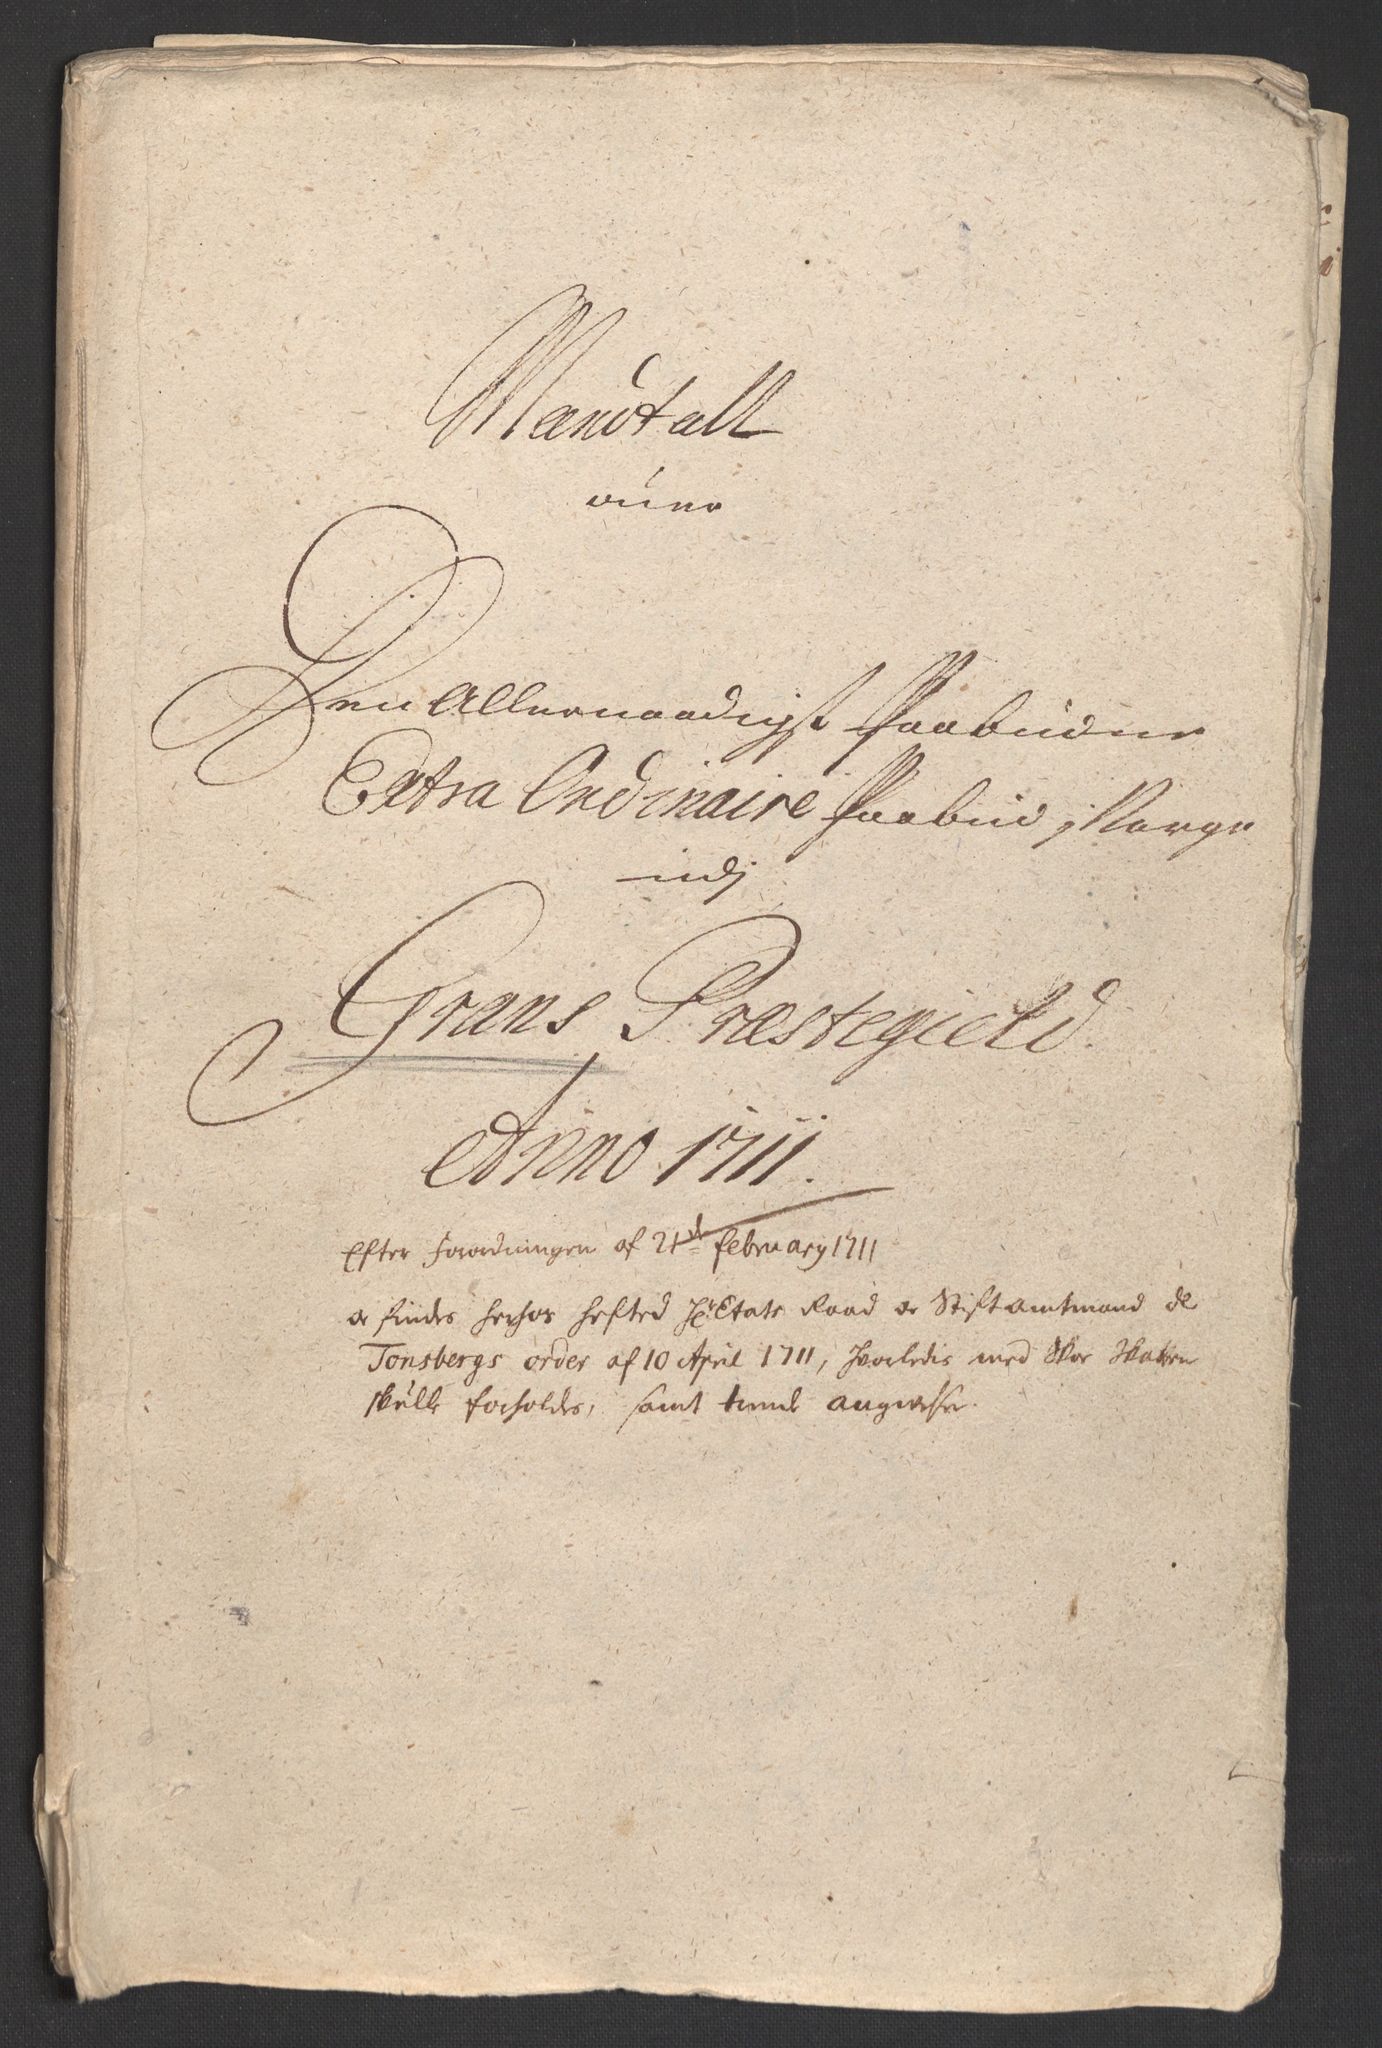 Mandtall
ouer
Den Allernaadigst Paabudne
Extra Ordinaire Paabud j Norge
udj
Grans Præstegield.
Anno 1711.
Efter forordningen af 21de february 1711
findes herhos hefted Hr Etats Raad Stiftamtmand de
Tonsbergs order af 10 April 1711, hvorledis med Skoe Skatten
skulle forholdes, samt